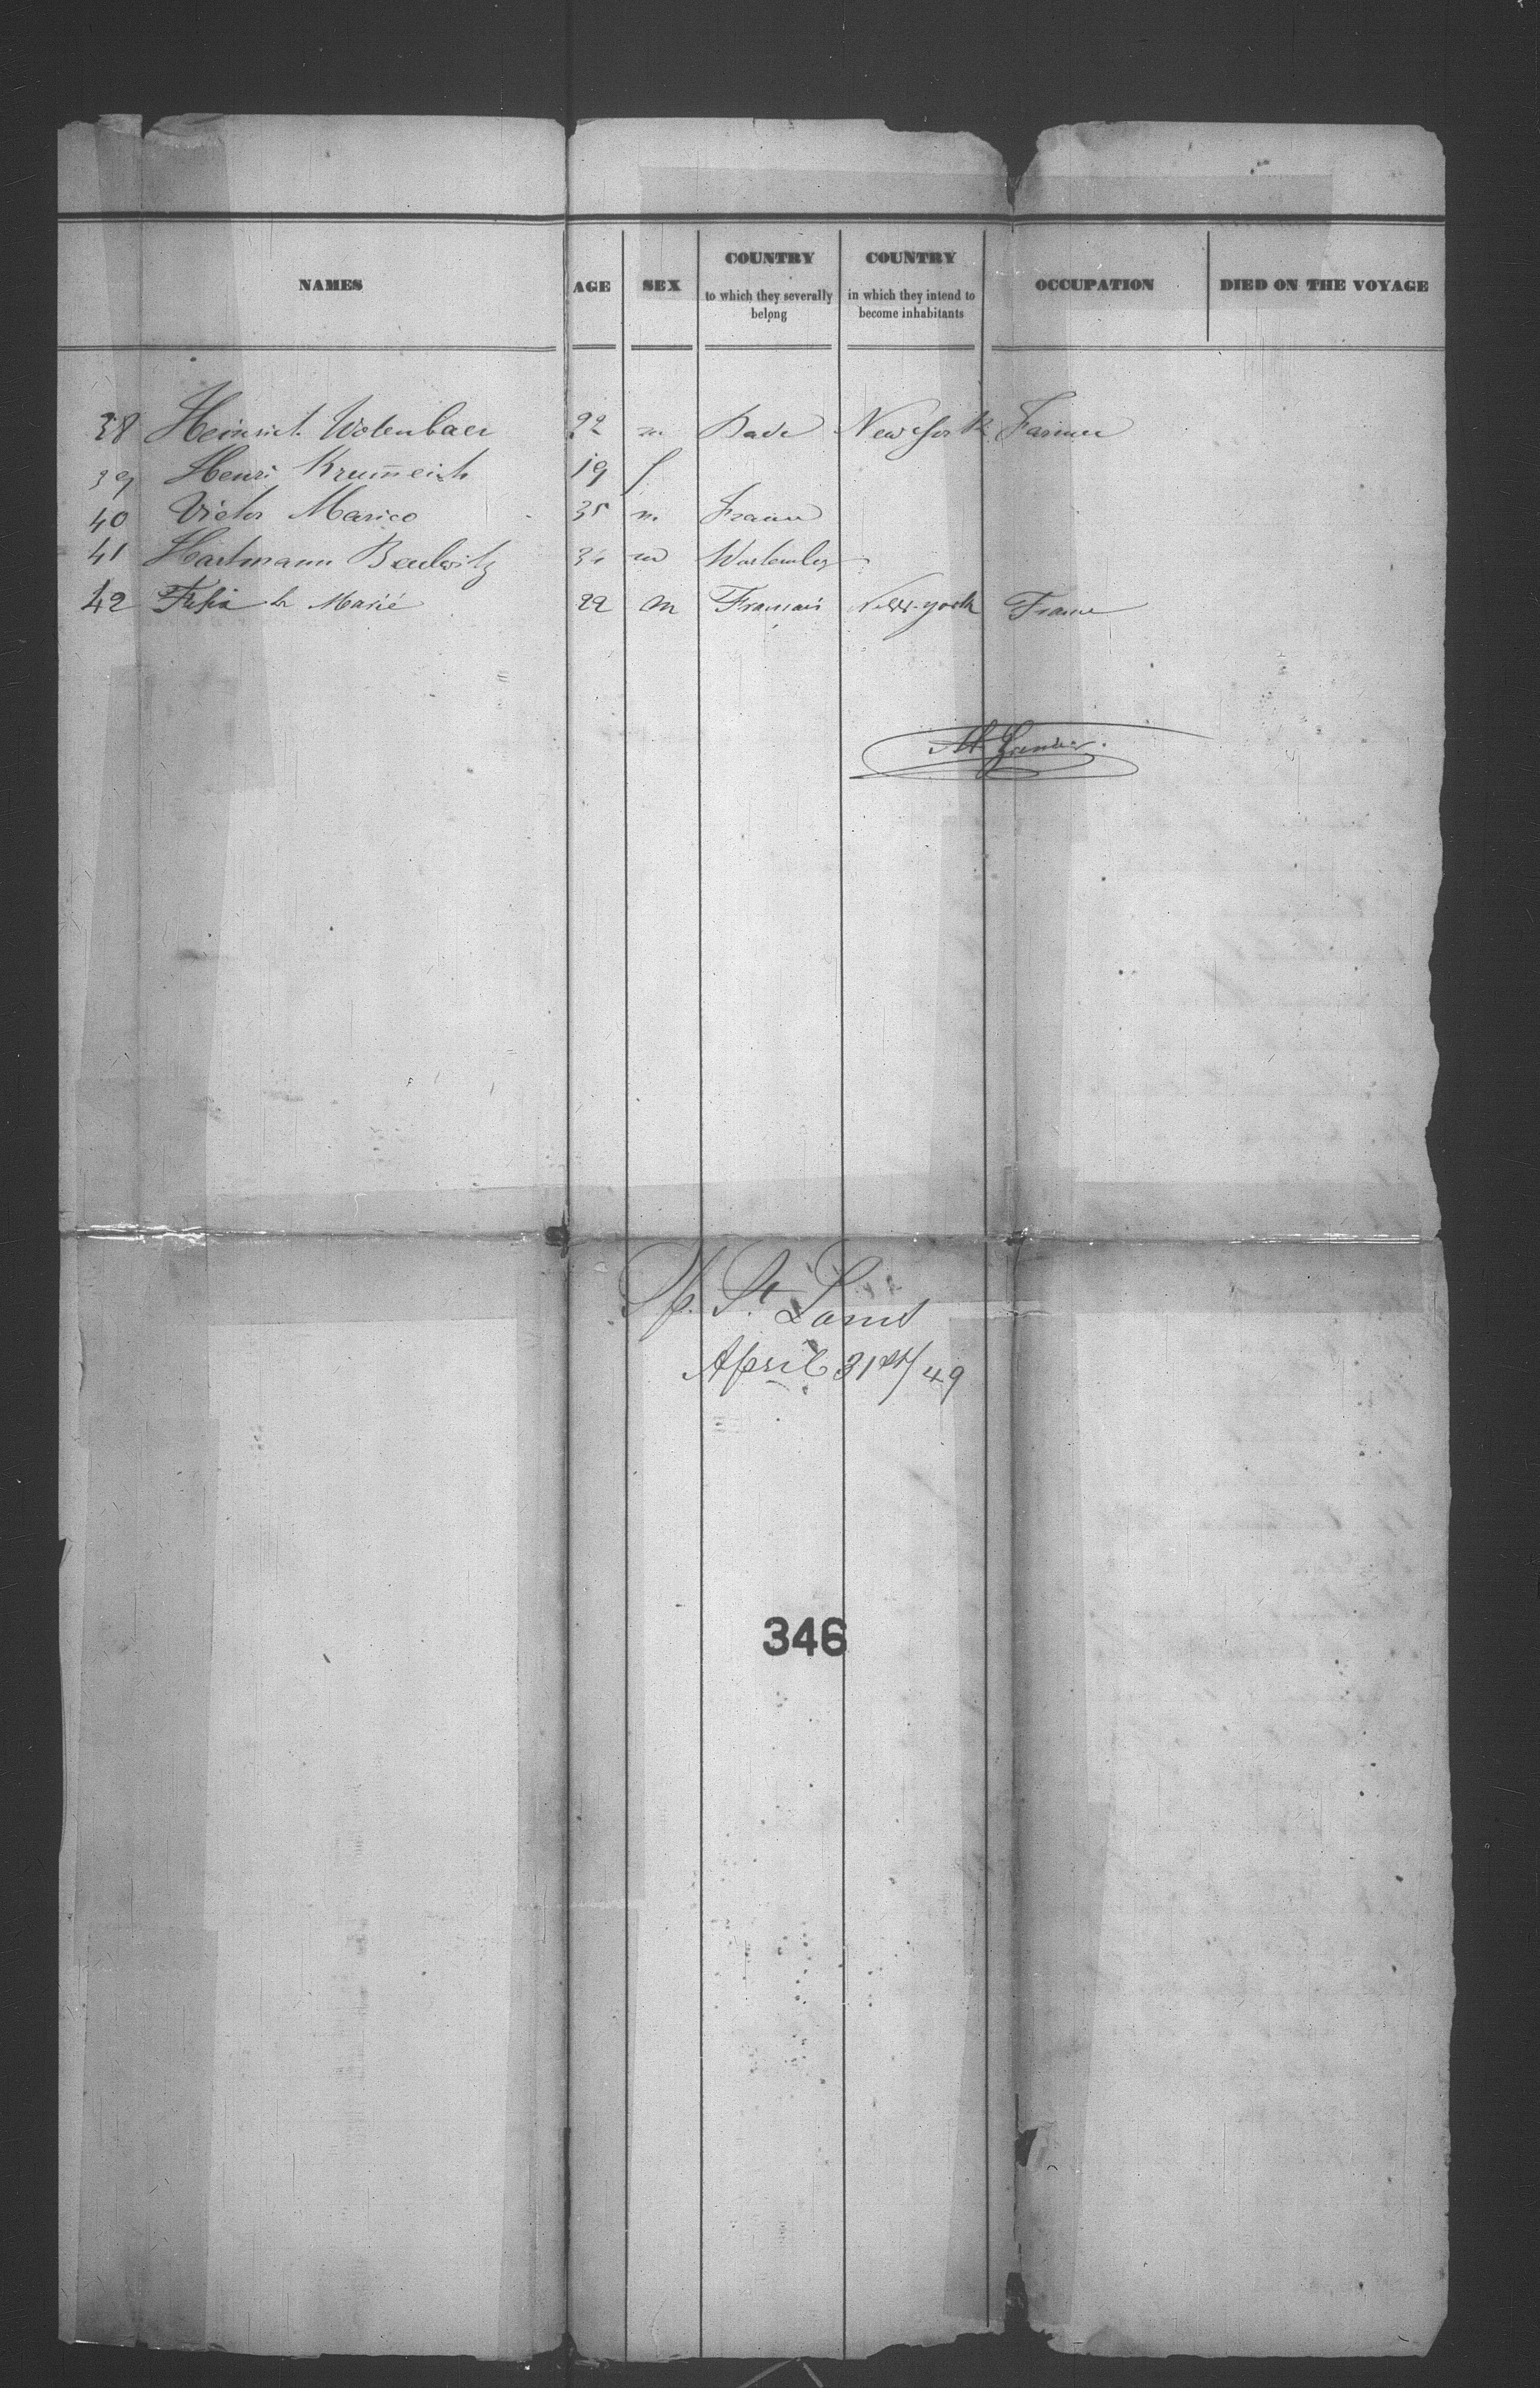 NAMES AGE SEX COUNTRY to which they severally belong COUNTRY in which they intend to become inhabitants OCCUPATION DIED ON THE VOYAGE
38 Heinrich Wolenbaer 22 m Bade New York Farmer
39 Henri Krum̅eich 19 f
40 Victor Marico 35 m France
41 Hartmann 34 m
42 Marié 22 m Français New-york France
Sp. St. Louis
April 31st/49
346